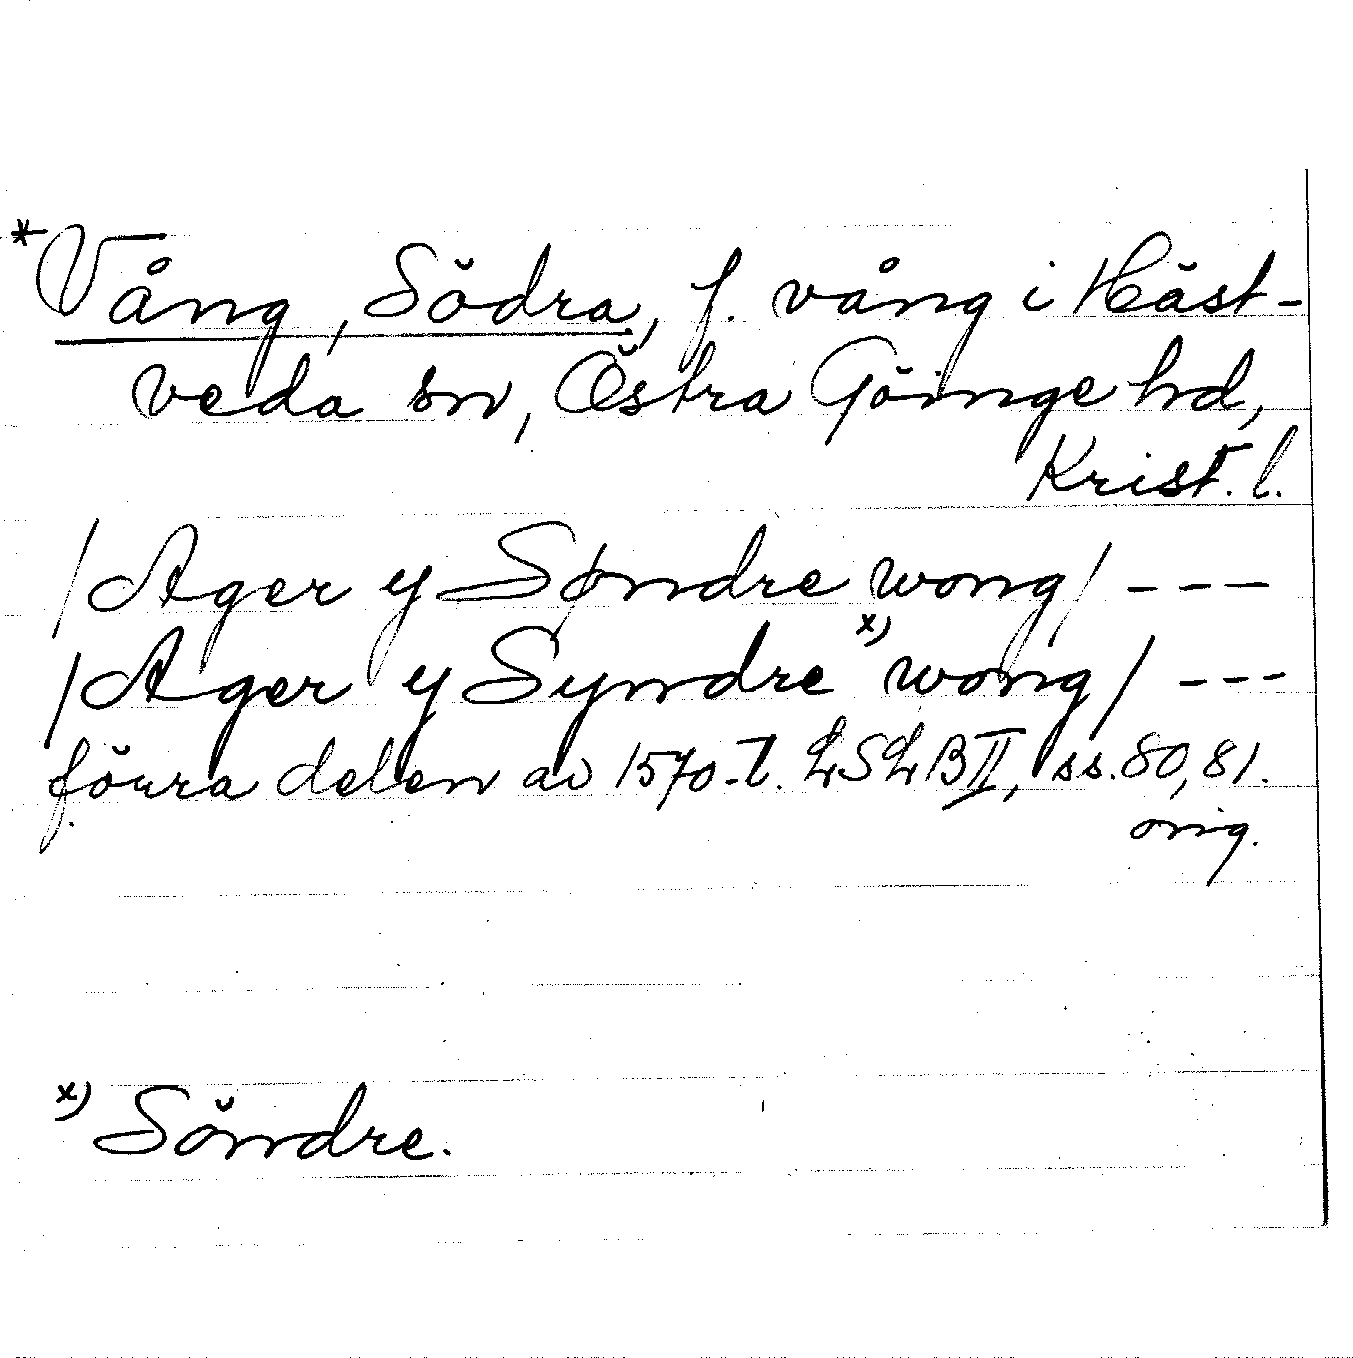 *Vång, Södra, f. vång i Häst-
veda sn, Östra Göinge hd,
Krist. l.
/Ager y Søndre wong/ ---
/Ager y Syndre x) wong/ ---
förra delen av 1570-t. LSLB II, ss. 80, 81.
orig.
x) Söndre.